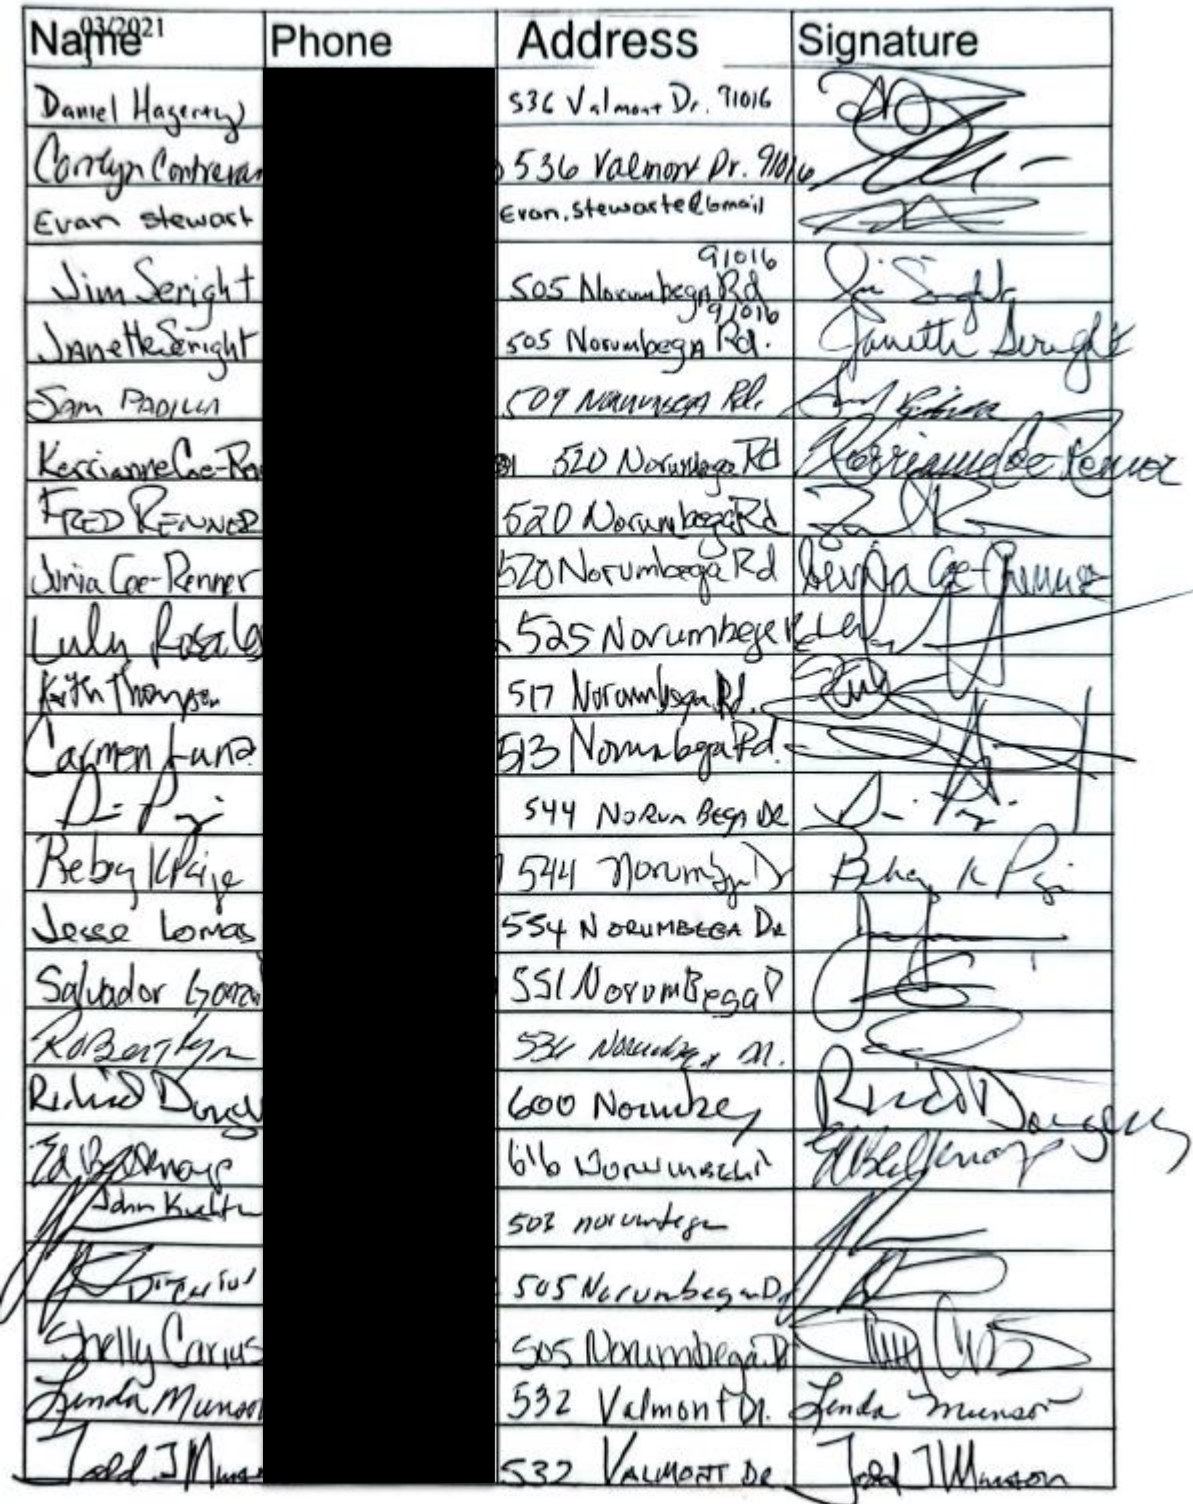 Name 03/2021 Phone Address Signature
Daniel Hagerty 536 Valmont Dr. 91016
Carolyn Contreras 536 Valmont Dr. 91016
Evan Stewart Evan.stewarte@Gmail
91016
Jim Seright 505 Norumbega Rd Jim Seright
91016
Janette Seright 505 Norumbega Rd. Janette Seright
Sam Padilla 509 Norumbega Rd.
Kerrianne Coe-Ren 520 Norumbega Rd Kerrianne Coe-Renner
FRED RENNER 520 Norumbega Rd
Junia Coe-Renner 520 Norumbega Rd Junia Coe-Renner
Luly Rosales 525 Norumbega R
Keith Thompson 517 Norumbega Rd.
Carmen Luna 513 Norumbega Rd.
544 Norumbega Dr
K Paige 544 Norumbega Dr K
Jesse Lomas 554 NORUMBEGA DR
Salvador Gonza 551 NorumBega
Robert
Richard 600
616
John 503 norumbega
505 Norumbega D
Shelly Carius 505 Norumbega Dr
Linda Munson 532 Valmont Dr. Linda Munson
Todd J Muns 532 VALMONT DR Todd J Munson